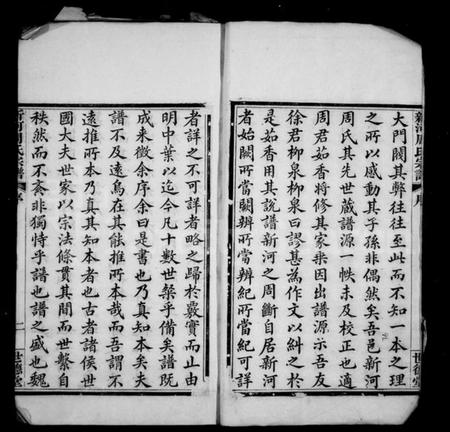 大門閥其弊往往至此而不知一本之理
之所以感動其子孫非偶然矣吾邑新河
周氏其先世蔵譜源一帙未及校正也適
周君茹香將修其家乗因出譜源示吾友
徐君柳泉柳泉曰謬甚為作文以糾之於
是茹香用其說譜新河之周斷自居新河
者始闕所當闕辨所當辨紀所當紀可詳
者詳之不可詳者略之歸於覈實而止由
明中葉以迄今凡十數世粲乎備矣譜既
成来徵余序余曰是書也乃真知本矣夫
譜不及遠烏在其能推所本哉而吾謂不
遠推所本乃真其知本者也古者諸侯世
國大夫世家以宗法條貫其間而世繫自
秩然而不紊非獨恃乎譜也譜之盛也魏
新河周氏宗譜
序
世德堂
新河周氏宗譜
序
二
世德堂